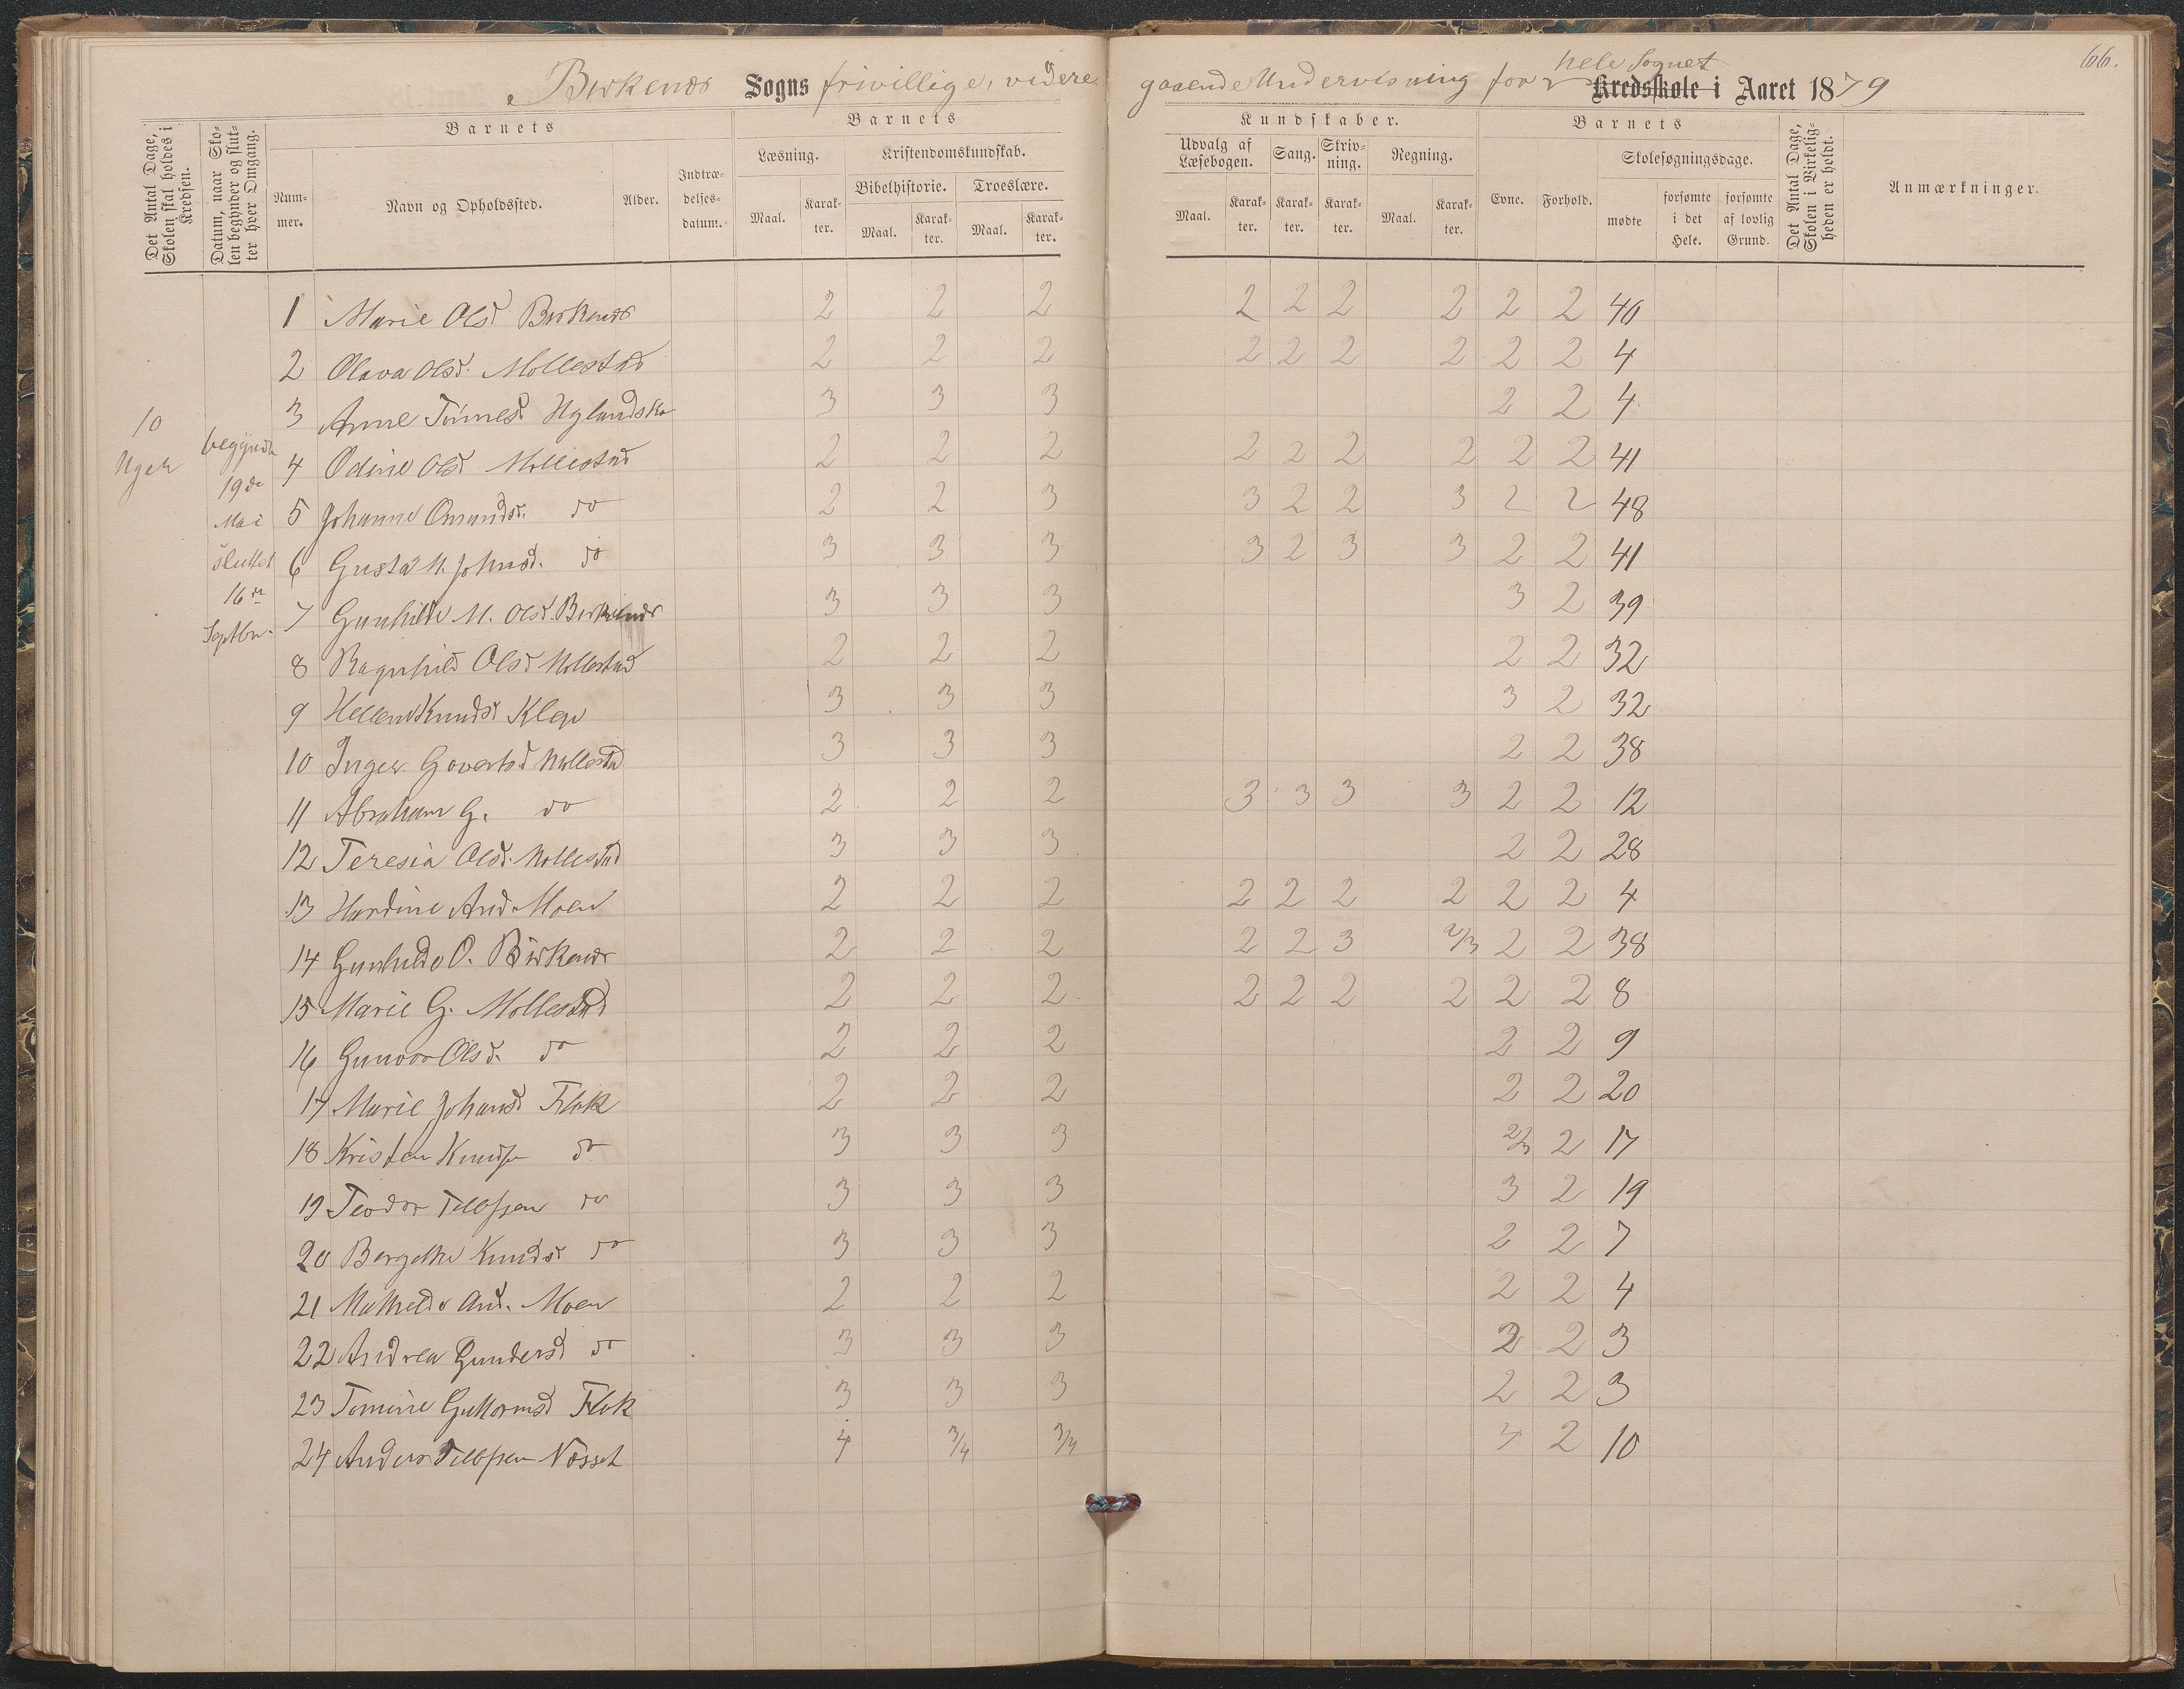 66.
Birkenæs Sogns frivillige, videregaaende Undervisning for hele Sognet Kredsskole i Aaret 1879
Det Antal Dage, Skolen skal holdes i Kredsen.
Datum, naar Skolen begynder og slutter hver Omgang.
Barnets
Nummer.
Navn og Opholdssted.
Alder.
Indtrædelsesdatum.
Barnets
Læsning.
Maal.
Karakter.
Kristendomskundskab.
Bibelhistorie.
Maal.
Karakter.
Troeslære.
Maal.
Karakter.
Kundskaber.
Udvalg af Læsebogen.
Maal.
Karakter.
Sang.
Karakter.
Skrivning.
Karakter.
Regning.
Maal.
Karakter.
Barnets
Evne.
Forhold.
Skolesøgningsdage.
mødte
forsømte i det Hele.
forsømte af lovlig Grund.
Det Antal Dage, Skolen i Virkeligheden er holdt.
Anmærkninger.
10 Uger
begyndt 19de Mai sluttet 16de Septbr.
1 Marie Olsd Birkenæs 2 2 2 2 2 2 2 2 2 40
2 Olava Olsd. Mollestad 2 2 2 2 2 2 2 2 2 4
3 Anne Tønnesd. 3 3 3 2 2 4
4 Odine Olsd Mollestad 2 2 2 2 2 2 2 2 2 41
5 Johanne Omundsd. do 2 2 3 3 2 2 3 2 2 48
6 Gusta M. Johnsd. do 3 3 3 3 2 3 3 2 2 41
7 Gunhilde M. Olsd. Birkenæs 3 3 3 3 2 39
8 Ragnhild Olsd Mollestad 2 2 2 2 2 32
9 Hellene Knudsd Klep 3 3 3 3 2 32
10 Inger Govertsd Mollestad 3 3 3 2 2 38
11 Abraham G. do 2 2 2 3 3 3 3 2 2 12
12 Teresia Olsd. Mollestad 3 3 3 2 2 28
13 Hardine And. Moen 2 2 2 2 2 2 2 2 2 4
14 Gunhilde O. Birkenæs 2 2 2 2 2 3 2/3 2 2 38
15 Marie G. Mollestad 2 2 2 2 2 2 2 2 2 8
16 Gunvor Olsd. do 2 2 2 2 2 9
17 Marie Johansd Flak 2 2 2 2 2 20
18 Kristen Knudsen do 3 3 3 2/3 2 17
19 Teodor Tellefsen do 3 3 3 3 2 19
20 Bergithe Knudsd do 3 3 3 2 2 7
21 Mathilde And. Moen 2 2 2 2 2 4
22 Andrea Gundersd do 3 3 3 2 2 3
23 Tomine Guttormsd Flak 3 3 3 2 2 3
24 Anders Tellefsen Næsset 4 3/4 3/4 4 2 10